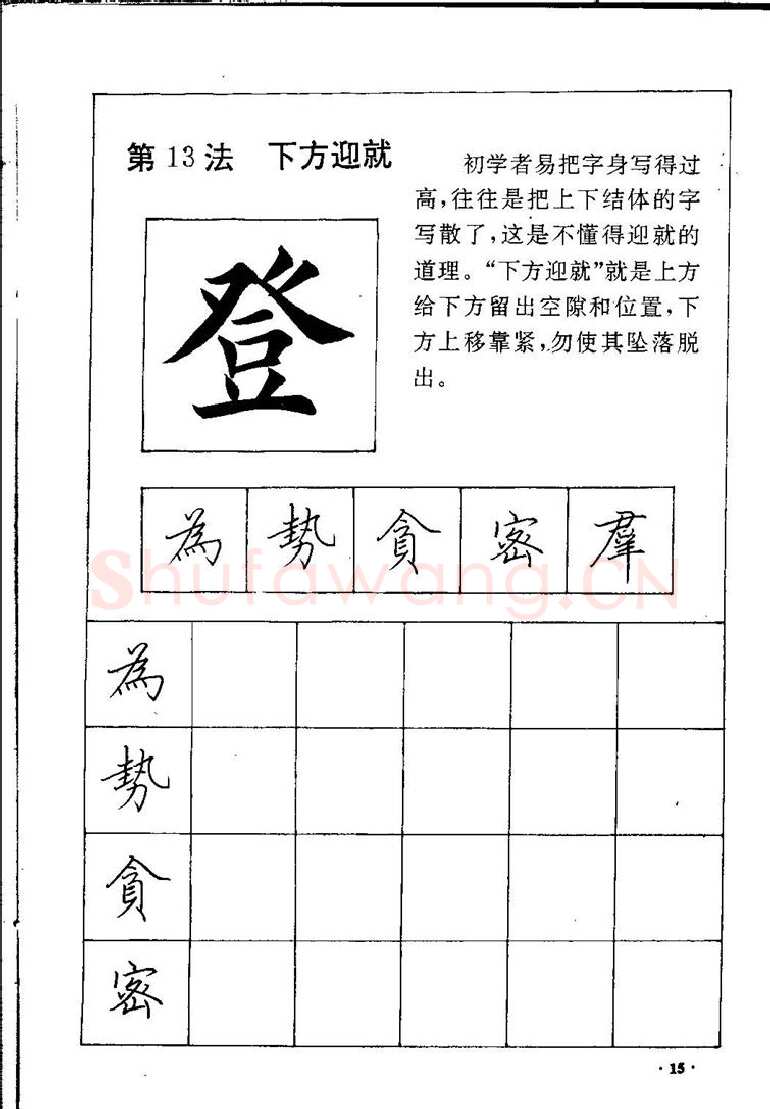 第13法 下方迎就
初学者易把字身写得过
高,往往是把上下结体的字
写散了,这是不懂得迎就的
道理。“下方迎就”就是上方
给下方留出空隙和位置,下
方上移靠紧,勿使其坠落脱
出。
登
為 勢 貪 密 羣
Shufawang.CN
為
勢
貪
密
·15·